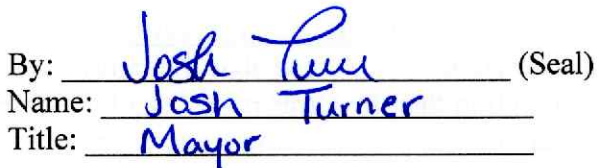 By: Josh Turner (Seal)
Name: Josh Turner
Title: Mayor